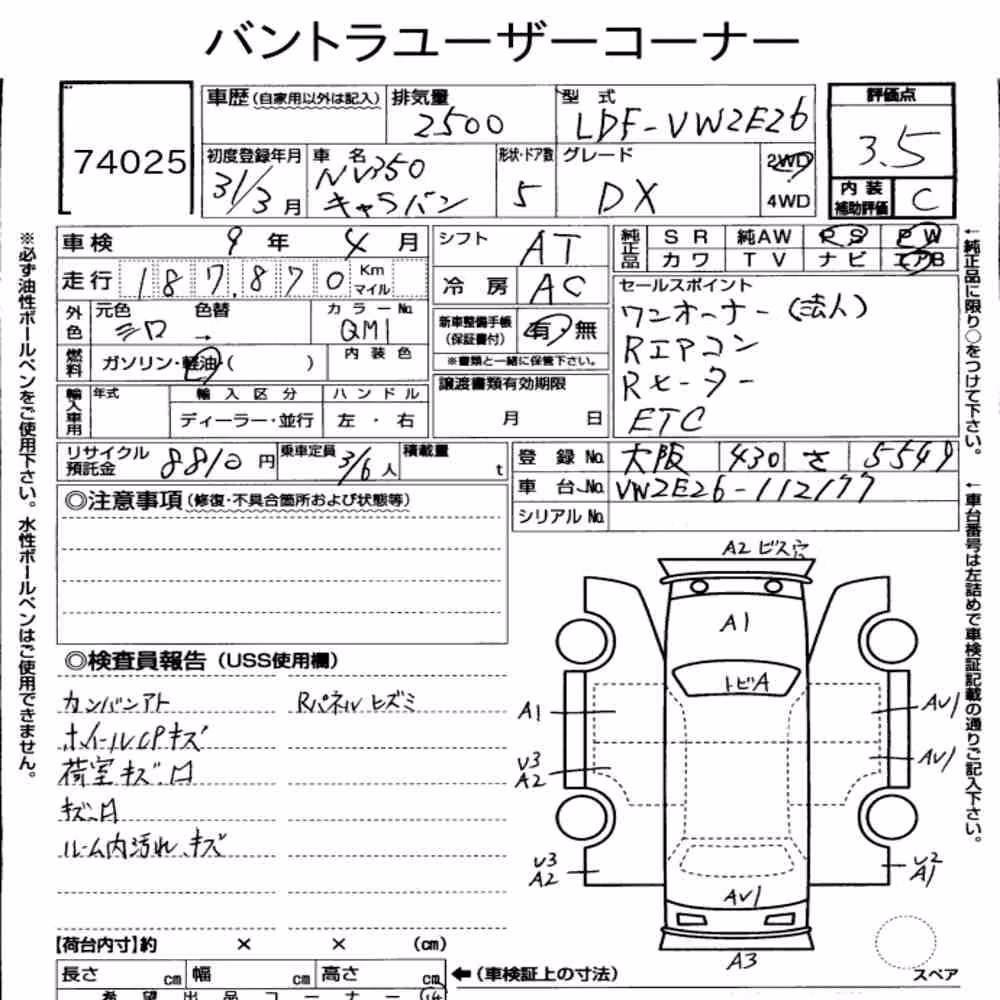 バントラユーザーコーナー
74025
車歴(自家用以外は記入) 排気量 2500 型式 LDF-VW2E26 評価点 3.5
初度登録年月 31/3月 車名 NV350 キャラバン 形状・ドア数 5 グレード DX 2WD 4WD 内装補助評価 C
車検 9年 4月 シフト AT 純正品 SR 純AW PS PW
カワ TV ナビ エアB
走行 187,870 Km マイル 冷房 AC
セールスポイント
ワンオーナー(法人)
Rエアコン
Rヒーター
ETC
外色 元色 シロ 色替 → カラーNo. QM1
新車整備手帳(保証書付) 有・無
※書類と一緒に保管下さい。
燃料 ガソリン・軽油・( ) 内装色
譲渡書類有効期限
月 日
輸入車用 年式 輸入区分 ハンドル
ディーラー・並行 左・右
リサイクル預託金 8810円 乗車定員 3/6人 積載量 t
登録No. 大阪 430 さ 5549
車台No. VW2E26-112177
シリアルNo.
◎注意事項(修復・不具合箇所および状態等)
◎検査員報告(USS使用欄)
カンバンアト Rパネル ヒズミ
ホイールCPキズ
荷室キズ.凹
キズ.凹
ルーム内汚れ.キズ
A2 ビス穴
A1
トビA
A1
AU1
U3
A2
AU1
U3
A2
U2
A1
AU1
A3
スペア
【荷台内寸】約 × × (cm)
長さ cm 幅 cm 高さ cm ←(車検証上の寸法)
希望出品コーナー 14
※必ず油性ボールペンをご使用下さい。水性ボールペンはご使用できません。
←純正品に限り○をつけて下さい。
←車台番号は左詰めで車検証記載の通りご記入下さい。